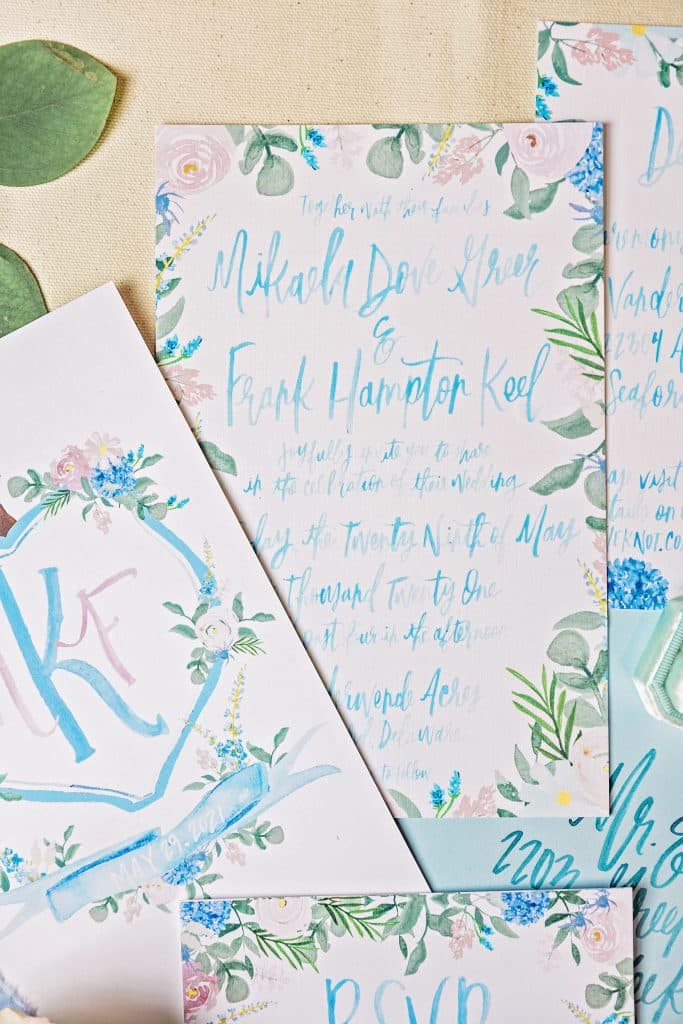 Together with their families
Mikaela Dove Greer
&
Frank Hampton Keel
joyfully invite you to share
in the celebration of their wedding
day, the Twenty Ninth of May
Thousand Twenty One
past four in the afternoon
derwende Acres
Delaware
to follow
De
Vander
22304 A
Seaford
visit
on
K
F
MAY 29, 2021
Mr.
2203
RSVP